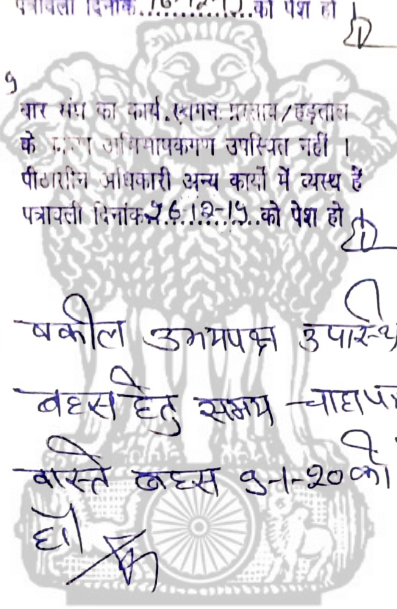 पत्रावली दिनांक 16.12.19 को पेश हो
9
बार संघ का कार्य स्थगन प्रस्ताव/हड़ताल
के कारण अभिभाषकगण उपस्थित नहीं ।
पीठासीन अधिकारी अन्य कार्यों में व्यस्थ हैं
पत्रावली दिनांक 26.12-19 को पेश हो
वकील उभयपक्ष उपस्थि
बहस हेतु समय चाहा
वास्ते बहस 9-1-20 को
हो।